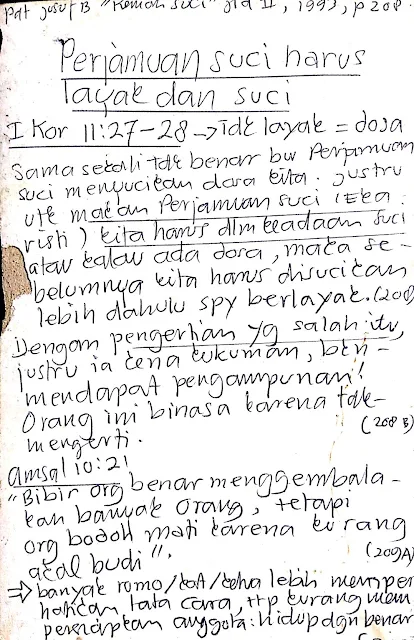 Pdt Jusuf B "Roman Suci" jld II, 1993, p 208.
Perjamuan suci harus
layak dan suci
I Kor 11:27-28 → tdk layak = dosa
Sama sekali tdk benar bw Perjamuan
suci menyucikan dosa kita. Justru
utk makan Perjamuan suci (Eka
risti) kita harus dlm keadaan suci
atau kalau ada dosa, maka se-
belumnya kita harus disucikan
lebih dahulu spy berlayak. (208)
Dengan pengertian yg salah itu,
justru ia kena hukuman, bkn-
mendapat pengampunan!
Orang ini binasa karena tdk-
mengerti. (208 B)
Amsal 10:21
"Bibir org benar menggembala-
kan banyak orang, tetapi
org bodoh mati karena kurang
akal budi". (209A)
⇒ banyak romo/ / lebih memper
hatikan tata cara, ttp kurang mem
persiapkan anggota: hidup dgn benar